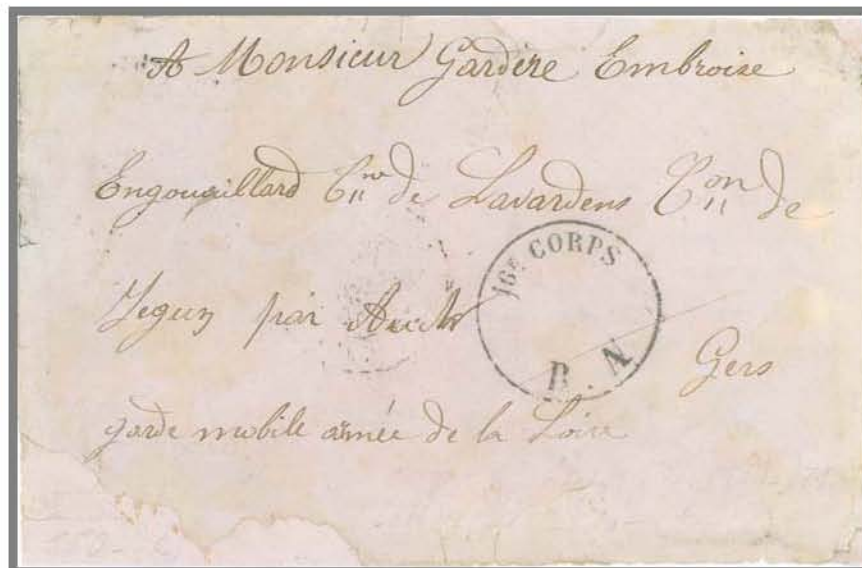 A Monsieur Gardère Embroise
Engouaillard C<sup>ne</sup> de Lavardens C<sup>on</sup> de
Jegun par Auch
16E CORPS
B. N
Gers
garde mobile armée de la Loire